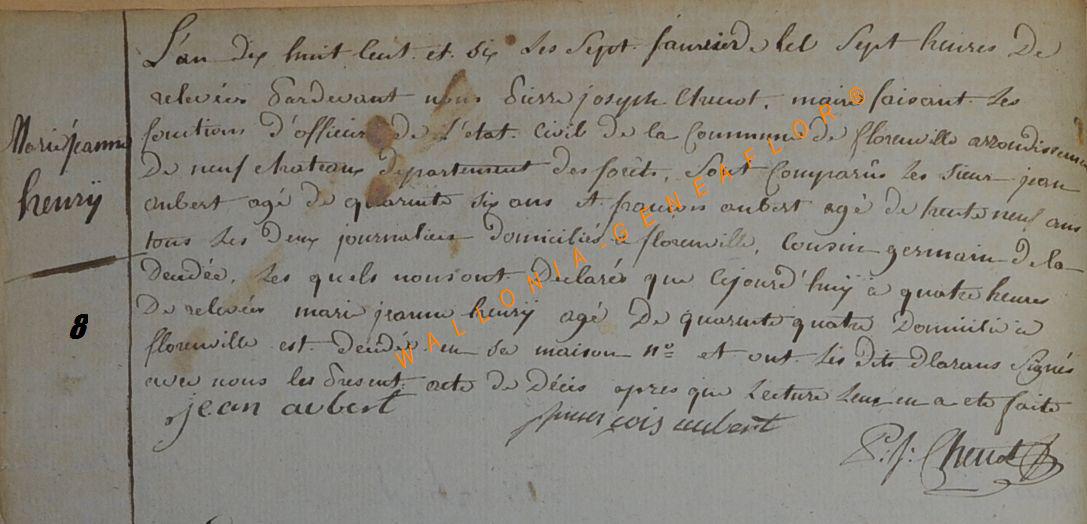 L'an dix huit Cent et six les Sept fauvrier de lel Sept heures De
relevées Pardevant nous Pierre joseph Chenot, maire faisant les
Marie jeanne
fonctions d'officier de L'état Civil de la Commune de florenville arrondisseme
De neufchateaux département des forêts, Sont Comparûs les Sieur jean
henrÿ
aubert agé de quarante six ans et françois aubert agé de trente neuf ans
tous les deux journaliers domiciliés a florenville, Cousin germain de la
Dendée, les quels nous ont Déclarés que Cejourd'huÿ a quatre heures
8
De relevées mari jeanne henrÿ agé De quarente quatre Domicilié a
florenville est Dendée en sa maison n° et ont les dits dlarans Signés
avec nous les Présent acte de Décis apres que Lecture Leur en a eté faite
jean aubert
françois aubert
P: j: Chenot
WALLONIA-GENEAFLOR®